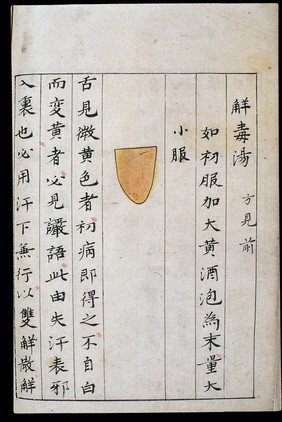 解毒湯 方見前
如初服加大黃酒泡為末量大
小服
舌見微黃色者初病即得之不自白
而變黃者必見讝語此由失汗表邪
入裏也必用汗下無行以雙解散解